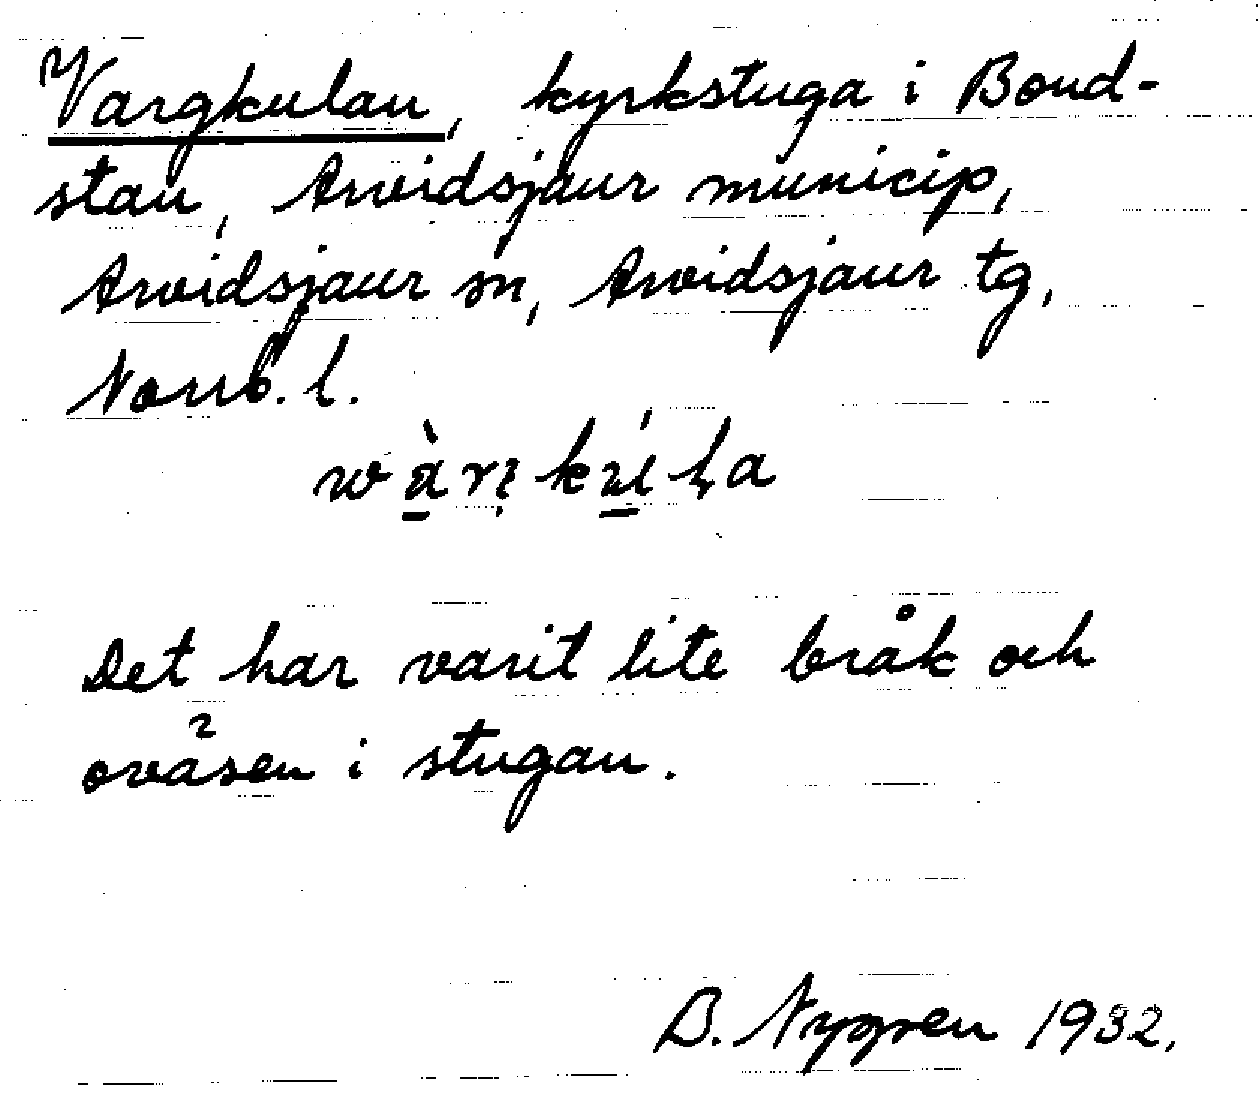 Vargkulan, kyrkstuga i Bond-
stan, Arvidsjaur municip,
Arvidsjaur sn, Arvidsjaur tg,
Norrb. l.
Det har varit lite bråk och
oväsen i stugan.
B. Nygren 1932.